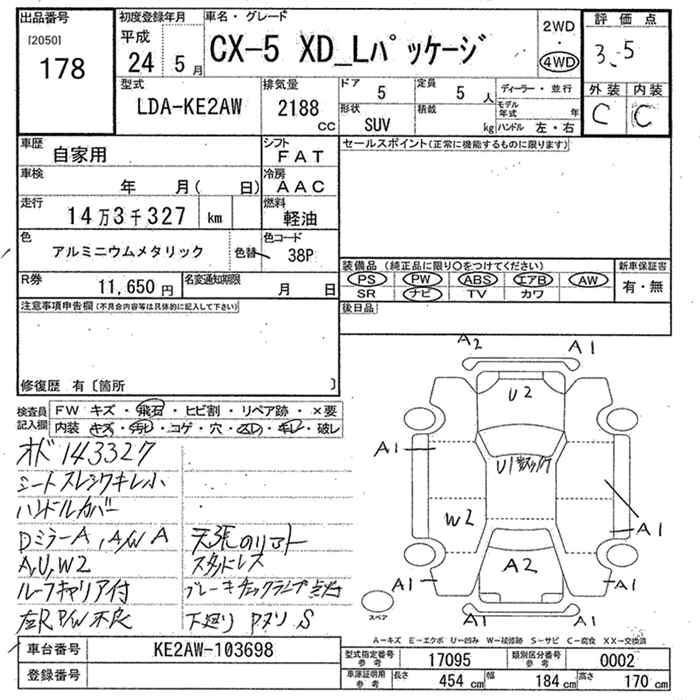 出品番号
[2050]
178
初度登録年月
平成
24 5月
車名・グレード
CX-5 XD_Lパッケージ
2WD
4WD
評価点
3.5
外装 内装
C C
型式
LDA-KE2AW
排気量
2188 cc
ドア 5
定員 5 人
形状 SUV
積載 kg
ディーラー・並行
モデル年式 年
ハンドル 左・右
車歴
自家用
シフト
FAT
車検
年 月( 日)
冷房
AAC
走行
14万3千327 km
燃料
軽油
色
アルミニウムメタリック
色替
色コード
38P
R券
11,650円
名変通知期限
月 日
セールスポイント(正常に機能するものに限ります)
装備品 (純正品に限り○をつけてください)
PS PW ABS エアB AW
SR ナビ TV カワ
新車保証書
有・無
後日品
注意事項申告欄(不具合内容等は具体的に記入して下さい)
修復歴 有〔箇所 〕
検査員記入欄
FW キズ・飛石・ヒビ割・リペア跡・×要
内装 キズ・汚レ・コゲ・穴・スレ・キレ・破レ
オド 143327
シートスレシワキレ小
ハンドルカバー
Dミラー A, A/W A
A,U,W2
ルーフキャリア付
左R P/W 不良
天張のリマト
スタッドレス
ブレーキチェックランプ点灯
下廻り Pヌリ S
A2
A1
U2
A1
U1
W2
A1
A2
A1
A1
A1
スペア
A-キズ E-エクボ U-凹み W-補修跡 S-サビ C-腐食 XX-交換済
車台番号
KE2AW-103698
登録番号
型式指定番号 参考
17095
類別区分番号 参考
0002
車庫証明用 参考
長さ 454 cm
幅 184 cm
高さ 170 cm